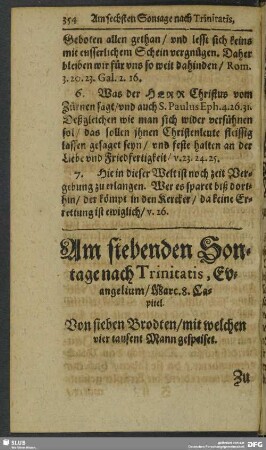 354 Am sechsten Sontage nach Trinitatis,
Geboten allen gethan / vnd lesst sich keins
mit eusserlichem Schein vergnügen. Daher
bleiben wir für vns so weit dahinden / Rom.
3. 20. 23. Gal. 2. 16.
6. Was der HERR Christus vom
Zürnen sagt / vnd auch S. Paulus Eph. 4. 26. 31.
Deßgleichen wie man sich wider versühnen
sol / das sollen jhnen Christenleute fleissig
lassen gesaget seyn / vnd feste halten an der
Liebe vnd Friedfertigkeit / v. 23. 24. 25.
7. Hie in dieser Welt ist noch zeit Ver-
gebung zu erlangen. Wer es sparet biß dort-
hin / der kömpt in den Kercker / da keine Er-
rettung ist ewiglich / v. 26.
Am siebenden Son-
tage nach Trinitatis, Ev-
angelium / Marc. 8. Ca-
pitel
Von sieben Brodten / mit welchen
vier tausent Mann gespeiset.
Zu
SLUB